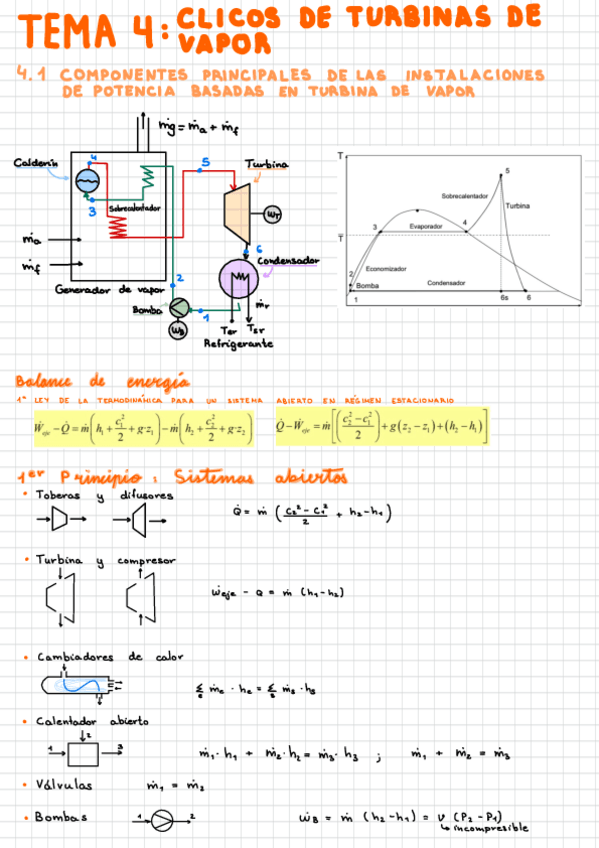 TEMA 4: CLICOS DE TURBINAS DE VAPOR
4.1 COMPONENTES PRINCIPALES DE LAS INSTALACIONES
DE POTENCIA BASADAS EN TURBINA DE VAPOR
ṁg = ṁa + ṁf
Calderín
4
5
Turbina
3
Sobrecalentador
ẆT
ṁa
ṁf
6
Condensador
Generador de vapor
2
Bomba
1
ṁr
ẆB
Ter
Tsr
Refrigerante
T
5
Sobrecalentador
Turbina
3
Evaporador
4
T̅
Economizador
2
Bomba
Condensador
1
6s
6
Balance de energía
1ª LEY DE LA TERMODINÁMICA PARA UN SISTEMA ABIERTO EN RÉGIMEN ESTACIONARIO
Ẇeje − Q̇ = ṁ(h₁ + c₁²/2 + g·z₁) − ṁ(h₂ + c₂²/2 + g·z₂)
Q̇ − Ẇeje = ṁ[((c₂² − c₁²)/2) + g(z₂ − z₁) + (h₂ − h₁)]
1er Principio: Sistemas abiertos
• Toberas y difusores
Q̇ = ṁ ( (c₂² − c₁²)/2 + h₂ − h₁ )
• Turbina y compresor
Ẇeje − Q = ṁ (h₁ − h₂)
• Cambiadores de calor
Σe ṁe · he = Σs ṁs · hs
• Calentador abierto
2
1
3
ṁ₁ · h₁ + ṁ₂ · h₂ = ṁ₃ · h₃ ; ṁ₁ + ṁ₂ = ṁ₃
• Válvulas ṁ₁ = ṁ₂
• Bombas
1
2
ẆB = ṁ (h₂ − h₁) = v (P₂ − P₁)
↳ incompresible